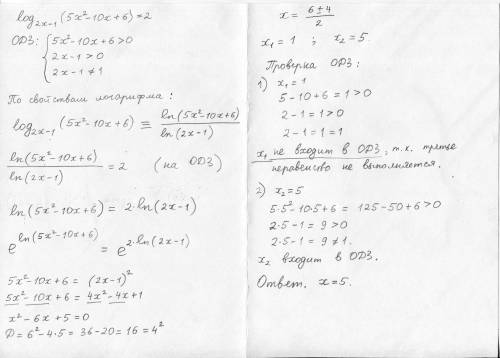 log₂ₓ₋₁ (5x²-10x+6)=2
ОДЗ: { 5x²-10x+6>0
2x-1>0
2x-1≠1
По свойствам логарифма:
log₂ₓ₋₁ (5x²-10x+6) ≡ ln(5x²-10x+6)/ln(2x-1)
ln(5x²-10x+6)/ln(2x-1) = 2 (на ОДЗ)
ln(5x²-10x+6) = 2·ln(2x-1)
e^ln(5x²-10x+6) = e^2·ln(2x-1)
5x²-10x+6 = (2x-1)²
5x²-10x+6 = 4x²-4x+1
x²-6x+5=0
D=6²-4·5=36-20=16=4²
x = (6±4)/2
x₁=1 ; x₂=5.
Проверка ОДЗ:
1) x₁=1
5-10+6=1>0
2-1=1>0
2-1=1=1
x₁ не входит в ОДЗ, т.к. третье
неравенство не выполняется.
2) x₂=5
5·5²-10·5+6 = 125-50+6>0
2·5-1=9>0
2·5-1=9≠1.
x₂ входит в ОДЗ.
Ответ. x=5.